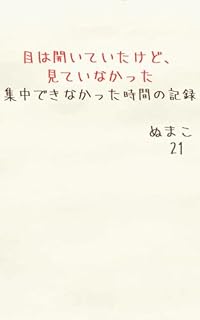 目は開いていたけど、
見ていなかった
集中できなかった時間の記録
ぬまこ
21